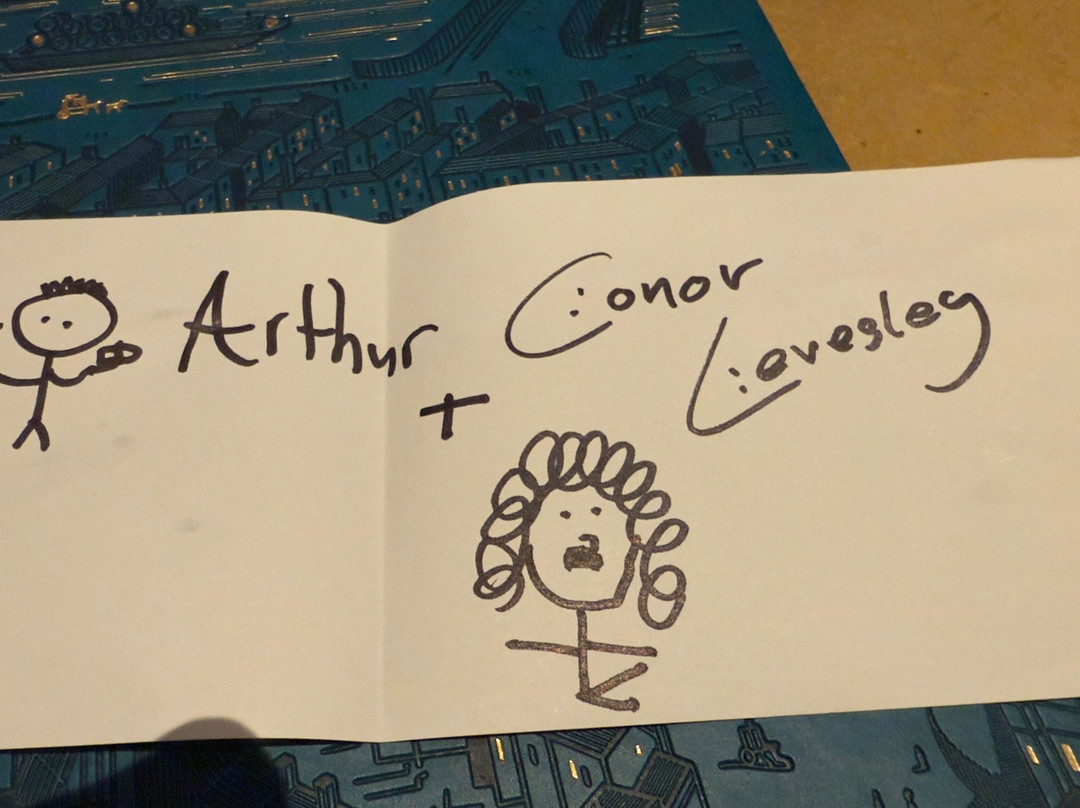 Arthur
+
Conor
Levesley